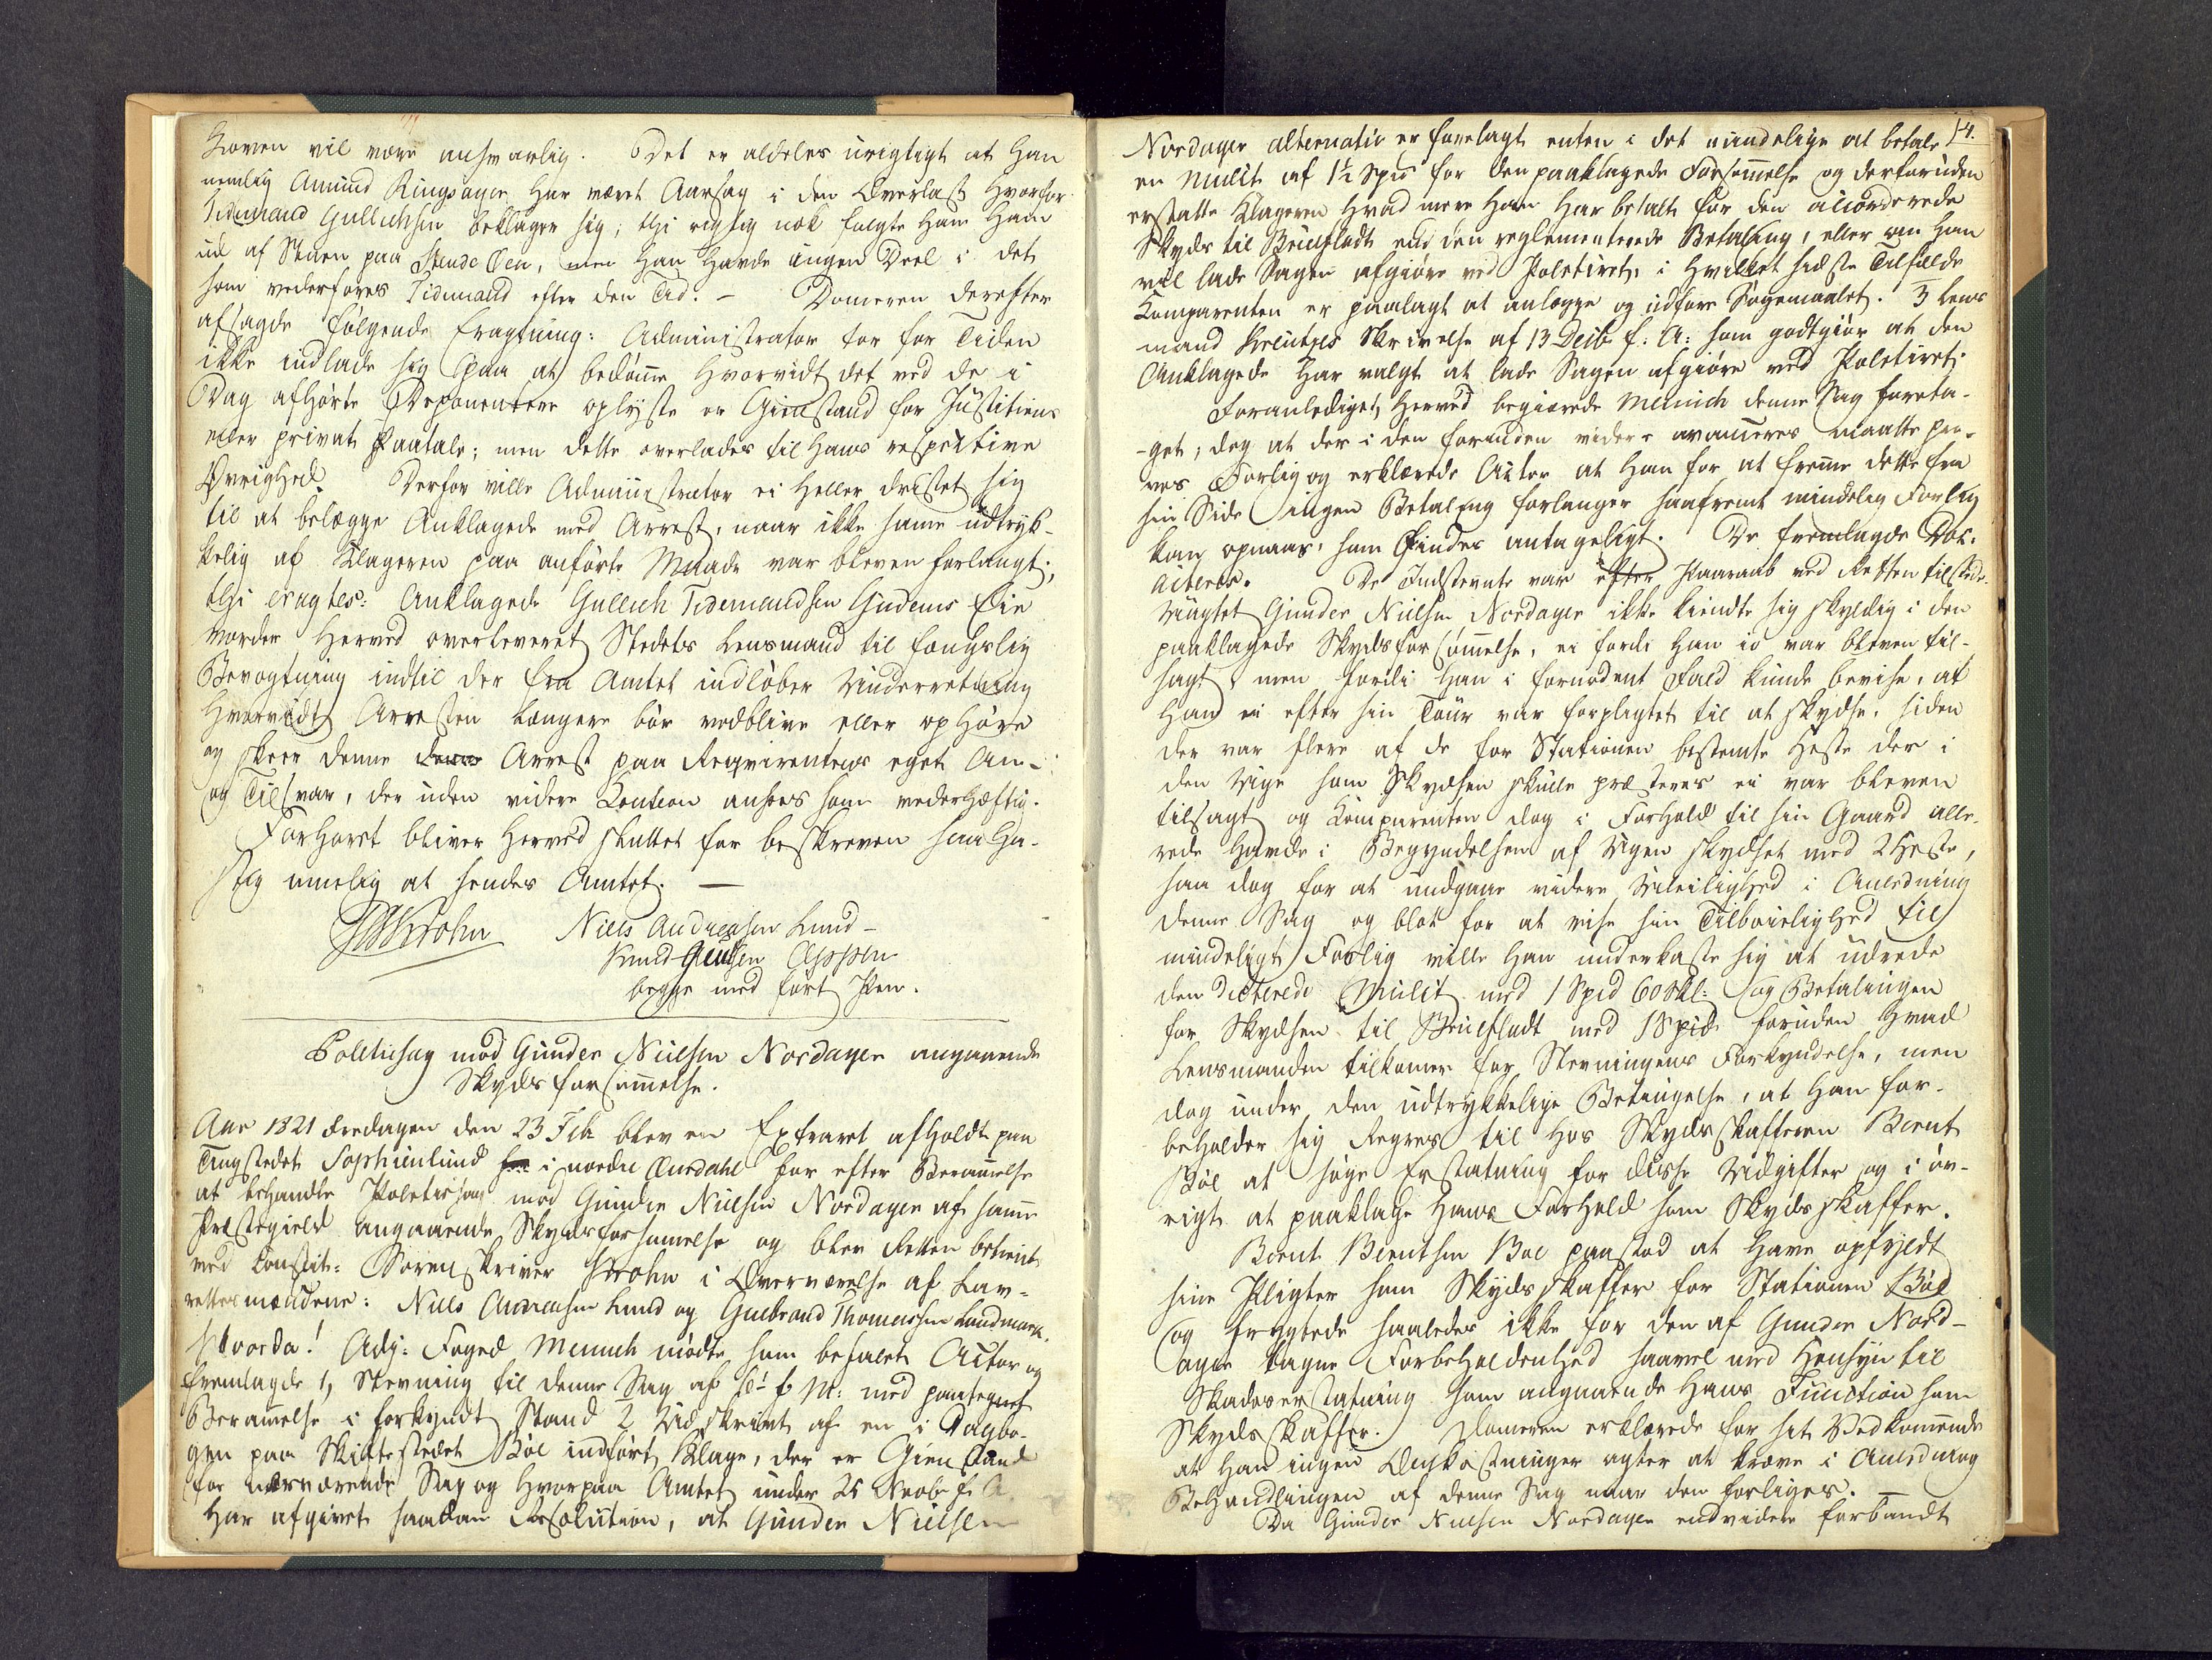 Loven vil være ansvarlig. Det er aldeles urigtigt at han
nemlig Amund Ringsager har været Aarsag i den Overlast hvorfor
Tidemand Gullichsen beklager sig; thi rigtig nok fulgte han ham
ud af Stuen paa Stende Øen, men han havde ingen Deel i det
som vederfores Tidemand efter den Tid. – Domeren derefter
afsagde følgende Eragtning: Administrator tør for Tiden
ikke indlade sig paa at bedømme hvorvidt det ved de i
Dag afhørte Deponentere oplyste er Gienstand for Justitiens
eller privat Paatale; men dette overlades til hans respektive
Øvrighed. Derfor ville Administrator ei heller dristet sig
til at belægge Anklagede med Arrest, naar ikke same udtryk-
kelig af Klageren paa anførte Maade var bleven forlangt;
thi eragtes: Anklagede Gullich Tidemandsen Gudems Eie
vorder herved overleveret Stedets Lensmand til fængslig
Bevogtning indtil der fra Amtet indløber Underretning
hvorvidt Arresten længere bør vedblive eller ophøre
og skeer denne Arrest paa Reqvirentens eget An-
og Tilsvar, der uden videre Caution ansees som vederhæftig.
Forhøret bliver herved sluttet for beskreven saa ha-
stig muelig at sendes Amtet. –
Krohn Niels Andreasen Lund –
Knud Olsen
begge med ført Pen.
Politiesag mod Gunder Nielsen Nordager angaaende
Skydsforsømmelse.
Aar 1821 Fredagen den 23 Feb. blev en Extraret afholdt paa
Tingstedet Sophienlund i nordre Aurdahl for efter Berammelse
at behandle Politiesag mod Gunder Nielsen Nordager af samme
Præstegield angaaende Skydsforsømmelse og blev Retten betient
ved Constit: Sorenskriver Krohn i Overværelse af Lav-
rettesmændene: Niels Andreasen Lund og Gulbrand Thomassen Landmark.
Hvorda! Adj: Foged Meinich mødte som befalet Actor og
fremlagde 1, Stevning til denne Sag af f. M: med paategnet
Berammelse i forkyndt Stand 2 Udskrivt af en i Dagbo-
gen paa Skiftestedet Bøe indført Klage, der er Gienstand
for nærværende Sag og hvorpaa Amtet under 25 Novbr f. A.
har afgivet saadan Resolution, at Gunder Nielsen
14.
Nordager alternativ er forelagt enten i det mindelige at betale
en Mulct af 1½ Spd for den paaklagede Forsømmelse og desforuden
erstatte Klageren hvad mere han har betalt for den accorderede
Skyds til Brufladt end den reglementerede Betaling, eller om han
vil lade Sagen afgiøre ved Politiret, i hvilket sidste Tilfælde
Comparenten er paalagt at anlægge og udføre Søgemaalet. 3 Lens-
mand Kreutzes Skrivelse af 13 Decb f. A: som godtgiør at den
Anklagede har valgt at lade Sagen afgiøre ved Politiret.
Foranlediget herved begiærede Meinich denne Sag foreta-
get, dog at der i den forinden videre avanceres maatte prø-
ves Forlig og erklærede Actor at han for at fremme dette fra
sin Side ingen Betaling forlanger saafremt mindelig Forlig
kan opnaaes, som findes antageligt. De fremlagde Doc:
acteres. De Indstevnte var efter Paaraab ved Retten tilstede.
Uagtet Gunder Nielsen Nordager ikke kiendte sig skyldig i den
paaklagede Skydsforsømmelse, ei fordi han io var bleven til-
sagt, men fordi han i fornødent Fald kunde bevise, at
han ei efter sin Tour var forpligtet til at skydse, siden
der var flere af de for Stationen bestemte Heste der i
den Uge som Skydsen skulle præsteres ei var bleven
tilsagt og Comparenten dog i Forhold til sin Gaard alle-
rede havde i Begyndelsen af Ugen skydset med 2 Heste,
saa dog for at undgaae videre Uleilighed i Anledning
denne Sag og blot for at vise sin Tilbøielighed til
mindeligt Forlig ville han underkaste sig at udrede
den dicterede Mulct med 1 Spd 60 Skl: og Betalingen
for Skydsen til Bruflat med 1 Spd foruden hvad
Lensmanden tilkomer for Stevningens Forkyndelse, men
dog under den udtrykkelige Betingelse, at han for-
beholder sig Regres til hos Skydsskafferen Bernt
Bøe at søge Erstatning for disse Udgifter og i øv-
rigt at paaklage hans Forhold som Skydsskaffer.
Bernt Berntsen Bøe paastod at have opfyldt
sine Pligter som Skydsskaffer for Stationen Bøe
og frygtede saaledes ikke for den af Gunder Nord-
ager tagne Forbeholdenhed saavel med Hensyn til
Skadeserstatning som angaaende hans Function som
Skydsskaffer. Domeren erklærede for sit Vedkomende
at han ingen Omkostninger agter at kræve i Anledning
Behandlingen af denne Sag naar den forliges. –
Da Gunder Nielsen Nordager endvidere forbandt